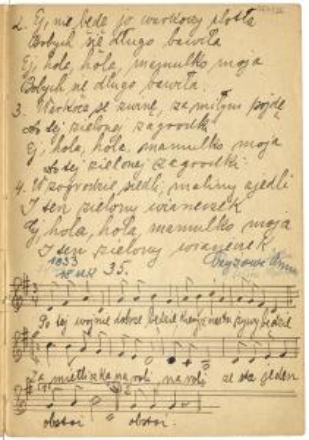 2. Ej, nie będę jo warkocy plotła
Bobych się długo bawiła
Ej, hola, hola, mamulko moja
Bobych się długo bawiła.
3. Warkocz se zwinę, za miłym pójdę
Do tej zielonej zagrodki
Ej, hola, hola, mamulko moja
Do tej zielonej zagrodki.
4. W zogrodzie siedli, maliny zjedli
I ten zielony wianeczek
Ej, hola, hola, mamulko moja
I ten zielony wianeczek
1033
35.
Po tej wojnie dobrze będzie
Za na roli na roli ze sta jeden
obstoi obstoi.